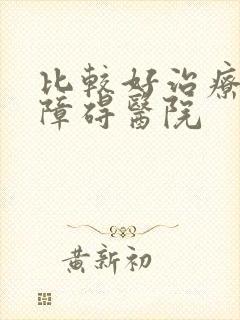 比較好治療
障碍醫院
黃新初